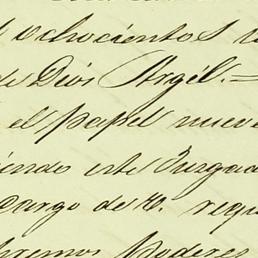 ochocientos
de Dios Argél.=
el papel nuev
iendo este Juzgad
cargo de H. requ
Poderes